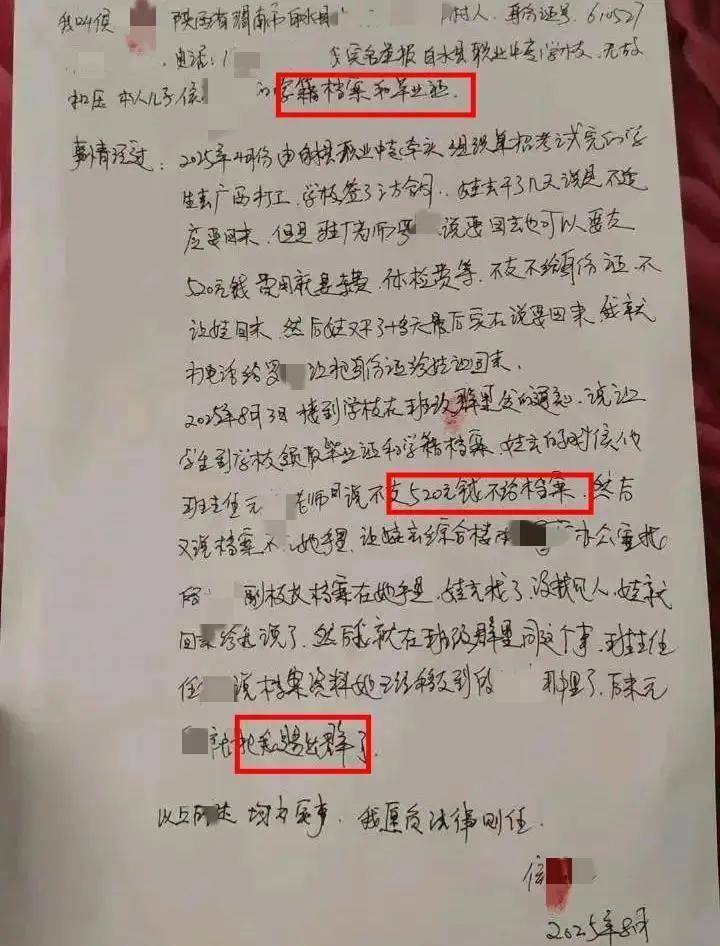 我叫侯 陕西省渭南市白水县 村人，身份证号，610527
，电话：1 我实名举报白水县职业中专学校，无故
扣压本人儿子侯 的学籍档案和毕业证。
事情经过：2025年4月份由白水职业中专牵头组织单招考试完的学
生去广西打工，学校签了三方合同，娃去干了几天说是不适
应要回来，但是驻厂老师罗 说要回去也可以要交
520元钱费用就是车费，体检费等，不交不给身份证，不
让娃回来，然后娃又干了十多天最后实在说要回来，我就
打电话给罗 让把身份证给娃让回来。
2025年8月3日接到学校在班级群里发的通知，说让
学生到学校领取毕业证和学籍档案，娃去的时候他
班主任元 老师说不交520元钱不给档案，然后
又说档案不 她手里，让娃去综合楼 办公室找
副校长档案在她手里，娃去找了，没找见人，娃就
回来给我说了，然后我就在班级群里问这个事，班主任
任 说档案资料她已经移交到 那里了，后来元
把我踢出群了。
以上 均为实事，我愿负法律责任。
侯
2025年8月